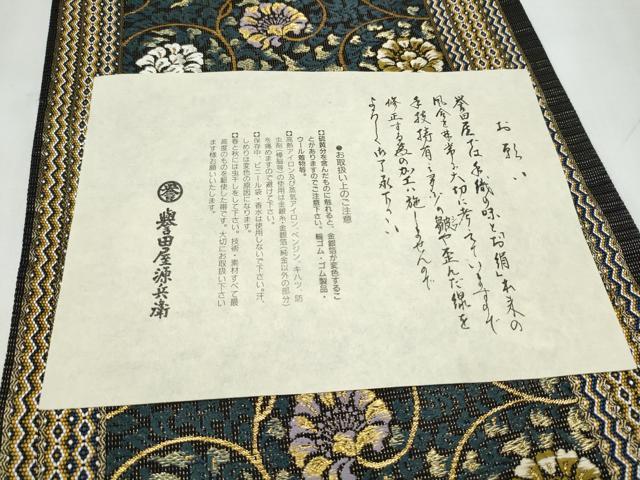 お願い
誉田屋では手織の味と「お絹」本来の
風合を非常に大切に考えていますので
手技持有の多少の皺や歪んだ線を
修正する為の加工は施しませんので
よろしく御了承下さい
●お取扱い上のご注意
□硫黄分を含んだものに触れると、金銀箔が変色するこ
とがありますのでご注意下さい。輪ゴム・ゴム製品・
ウール着物等。
□高熱アイロン及び蒸気アイロン、ベンジン、キハツ、防
虫剤(樟脳等)の使用は金銀糸・金銀箔(純金以外の部分)
を痛めますので避けて下さい。
□保存中、ビニール袋・香水は使用しないで下さい。汗、
しめりは変色の原因になります。
□春と秋には虫干しをして下さい。技術・素材すべて最
高度のものを駆使した帯です。大切にお取扱い下さい
ます様お願いいたします。
誉田屋源兵衛